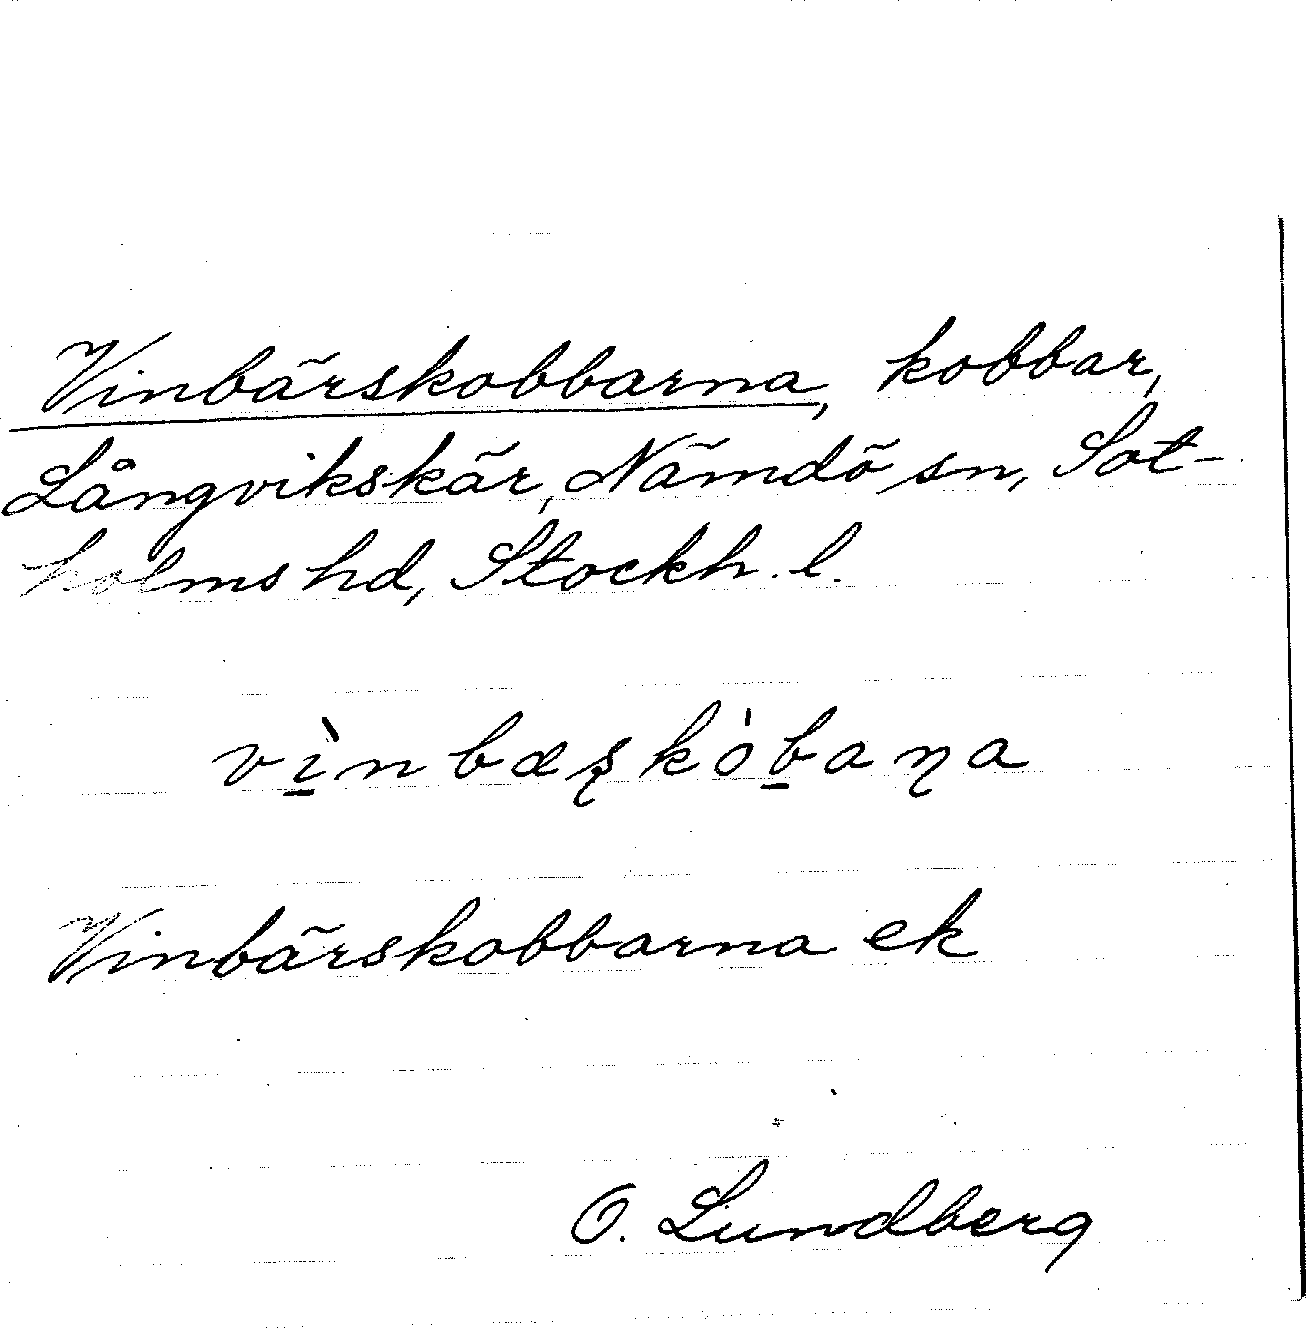 Vinbärskobbarna, kobbar,
Långvikskär, Nämdö sn, Sot-
holms hd, Stockh. l.
vì̱nbæʂkòḇaɳa
Vinbärskobbarna ek
O. Lundberg